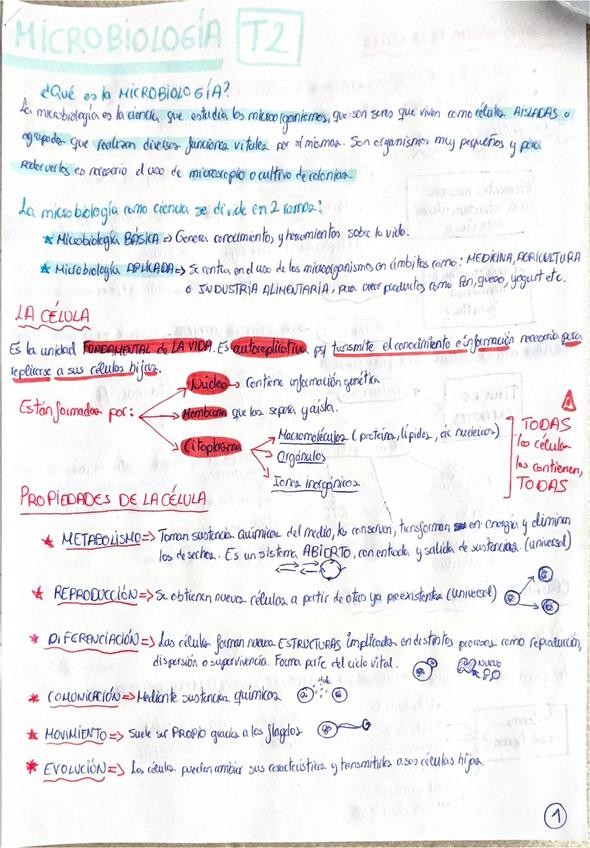 MICROBIOLOGÍA T2
¿Qué es la MICROBIOLOGÍA?
La microbiología es la ciencia, que estudia los microorganismos, que son seres que viven como células AISLADAS o
agrupadas que realizan diversas funciones vitales por sí mismas. Son organismos muy pequeños y para
poder verlos es necesario el uso de microscopio o cultivo de colonias.
La microbiología como ciencia se divide en 2 ramas:
★ Microbiología BÁSICA => Genera conocimientos y herramientas sobre la vida.
★ Microbiología APLICADA => Se centra en el uso de los microorganismos en ámbitos como: MEDICINA, AGRICULTURA
o INDUSTRIA ALIMENTARIA, para crear productos como Pan, queso, yogurt etc.
LA CÉLULA
Es la unidad FUNDAMENTAL de LA VIDA. Es autoreplicativa pq transmite el conocimiento e información necesaria para
replicarse a sus células hijas.
Están formadas por:
Núcleo → Contiene información genética.
Membrana que las separa y aísla.
Citoplasma
Macromoléculas (proteína, lípidos, ác nucleicos)
Orgánulos
Iones inorgánicos
TODAS
las células
las contienen,
TODAS
PROPIEDADES DE LA CÉLULA
★ METABOLISMO => Toman sustancias químicas del medio, las conservan, transforman en energía y eliminan
los desechos. Es un sistema ABIERTO, con entrada y salida de sustancias. (universal)
★ REPRODUCCIÓN => Se obtienen nuevas células a partir de otras ya preexistentes (universal)
★ DIFERENCIACIÓN => Las células forman nuevas ESTRUCTURAS implicadas en distintos procesos como reproducción,
dispersión o supervivencia. Forma parte del ciclo vital.
nuevo
★ COMUNICACIÓN => Mediante sustancias químicas
★ MOVIMIENTO => Suele ser PROPIO gracias a los flagelos
★ EVOLUCIÓN => Las células pueden cambiar sus características y transmitirlas a sus células hijas.
1